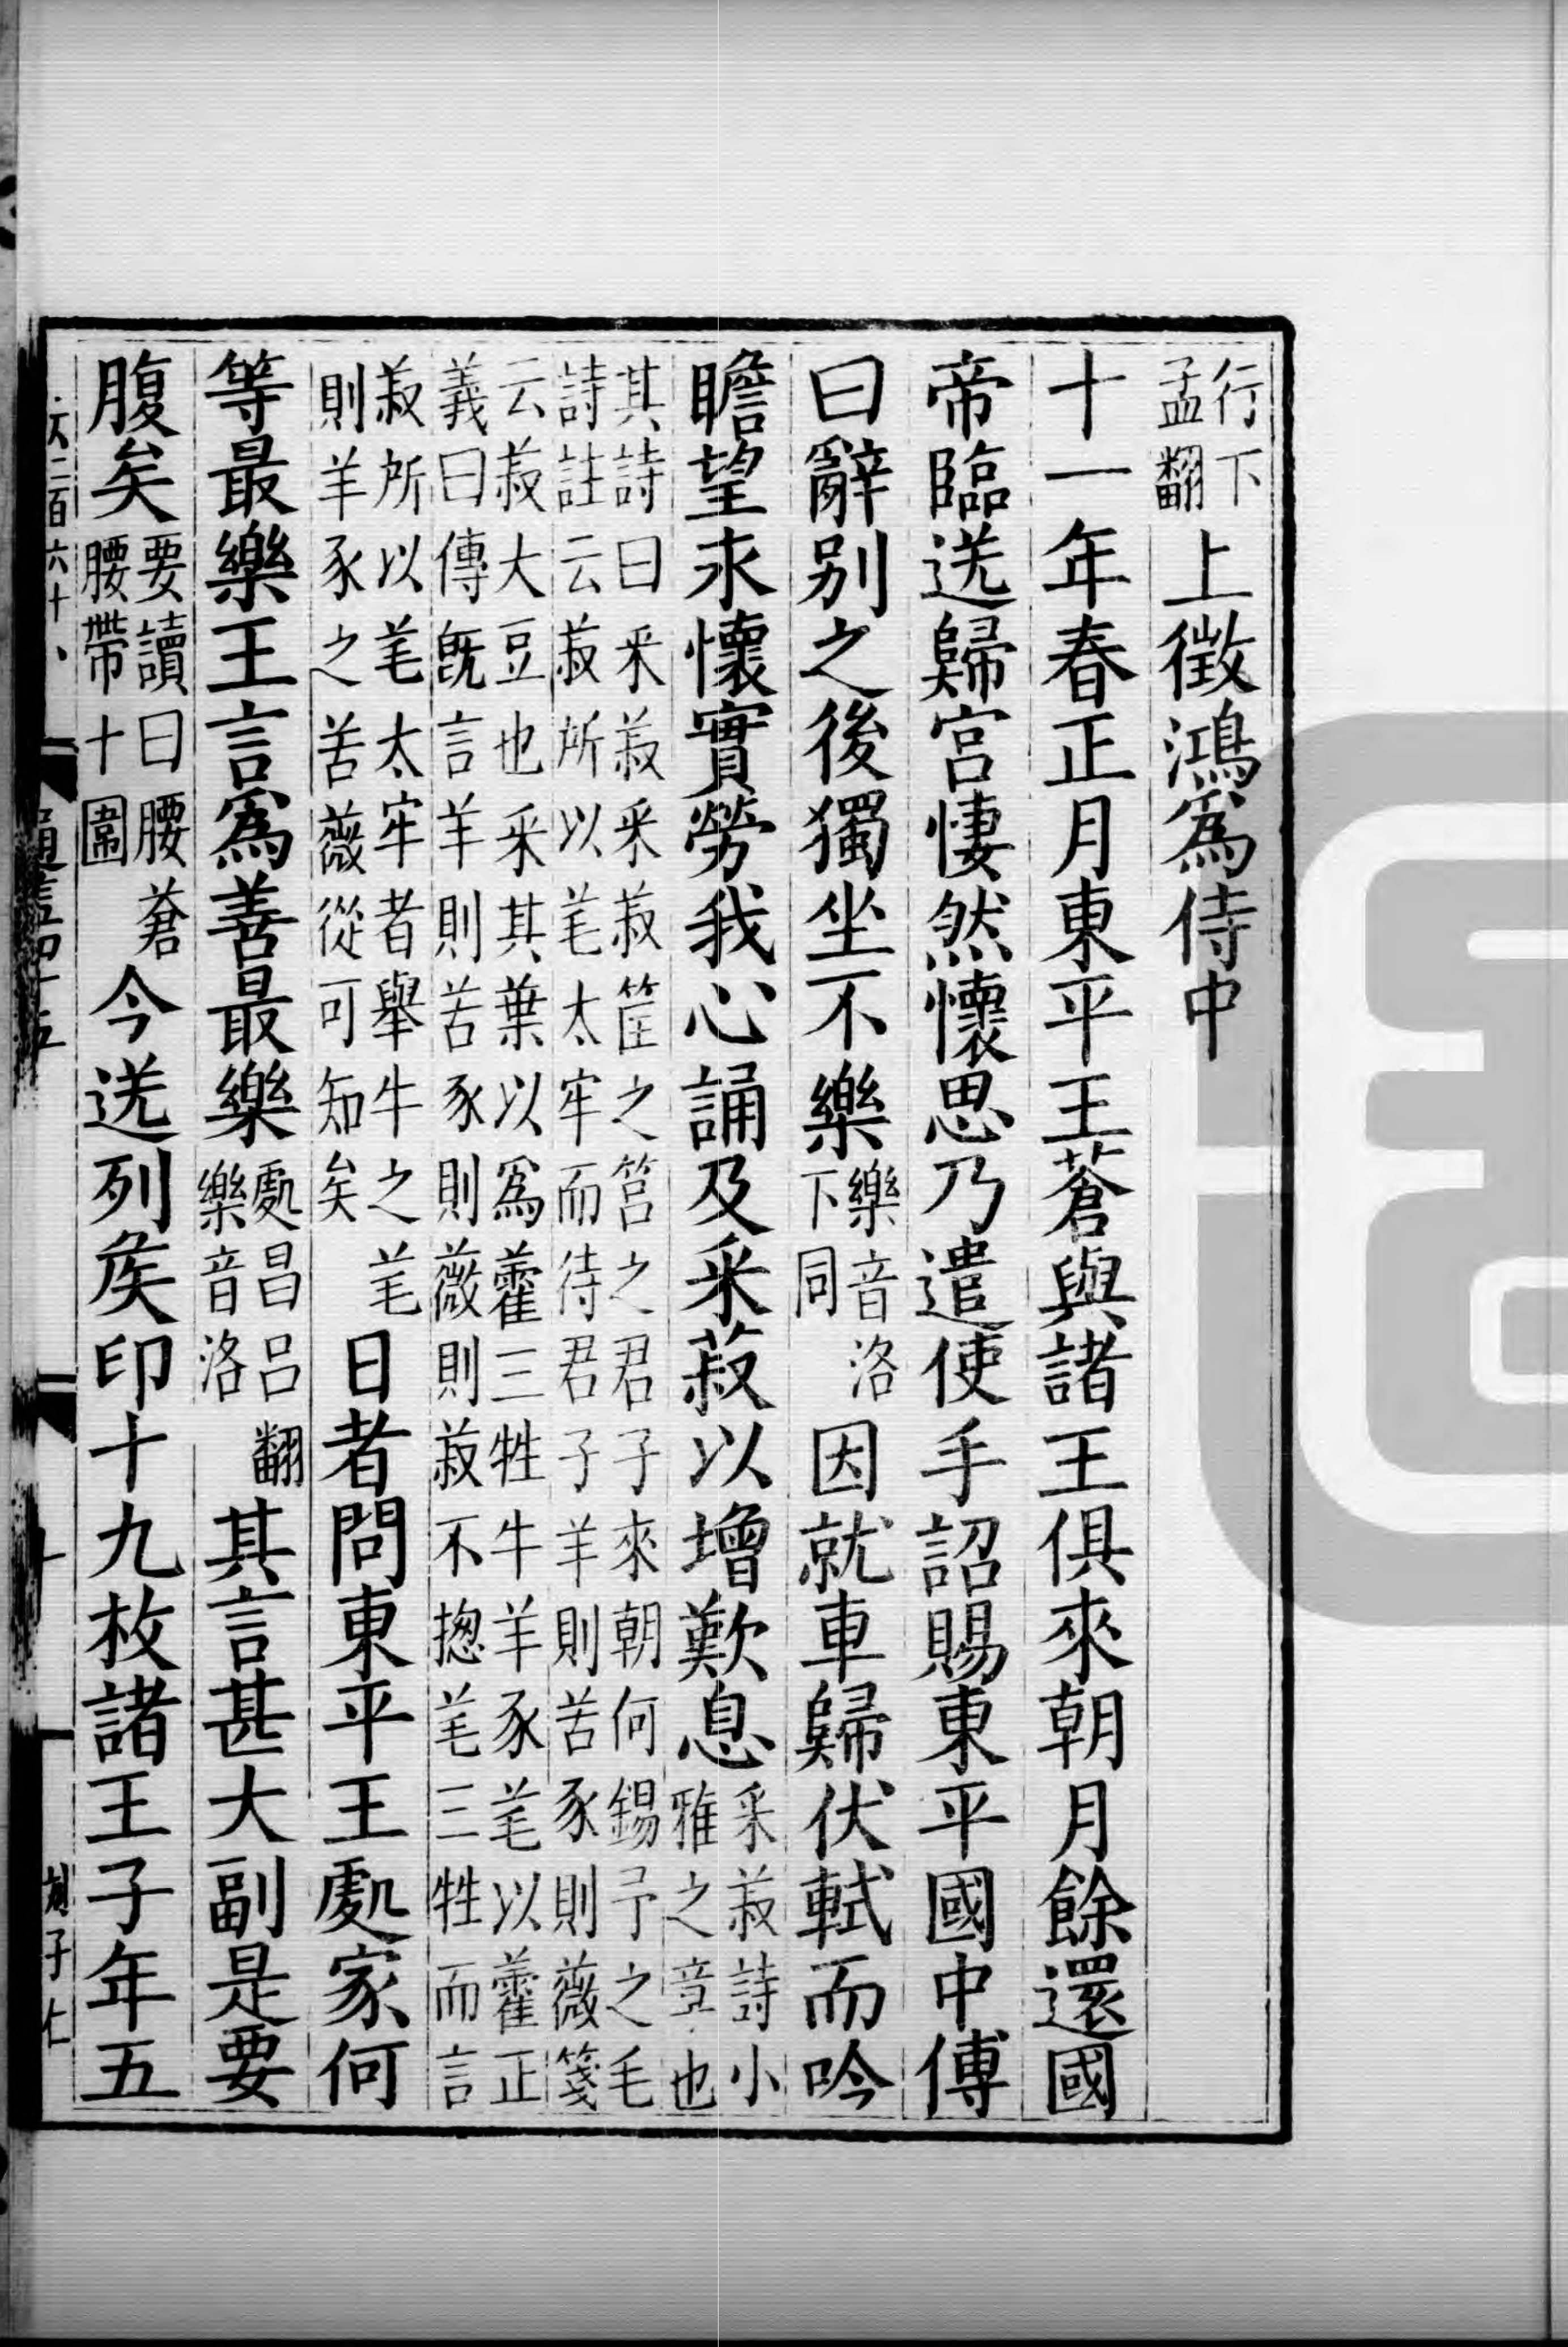 行下孟翻上徵鴻爲侍中
十一年春正月東平王蒼與諸王俱來朝月餘還國
帝臨送歸宫悽然懷思乃遣使手詔賜東平國中傅
曰辭别之後獨坐不樂樂音洛下同因就車歸伏軾而吟
瞻望永懷實勞我心誦及采菽以增歎息采菽詩小雅之章也
其詩曰采菽采菽筐之筥之君子來朝何錫予之毛詩註云菽所以芼太牢而待君子羊則苦豕則薇箋
云菽大豆也采其葉以爲藿三牲牛羊豕芼以藿正義曰傳旣言羊則苦豕則薇則菽不揔芼三牲而言
菽所以芼太牢者舉牛之芼則羊豕之苦薇從可知矣日者問東平王處家何
等最樂王言爲善最樂處昌吕翻樂音洛其言甚大副是要
腹矣要讀曰腰蒼腰帶十圍今送列侯印十九枚諸王子年五